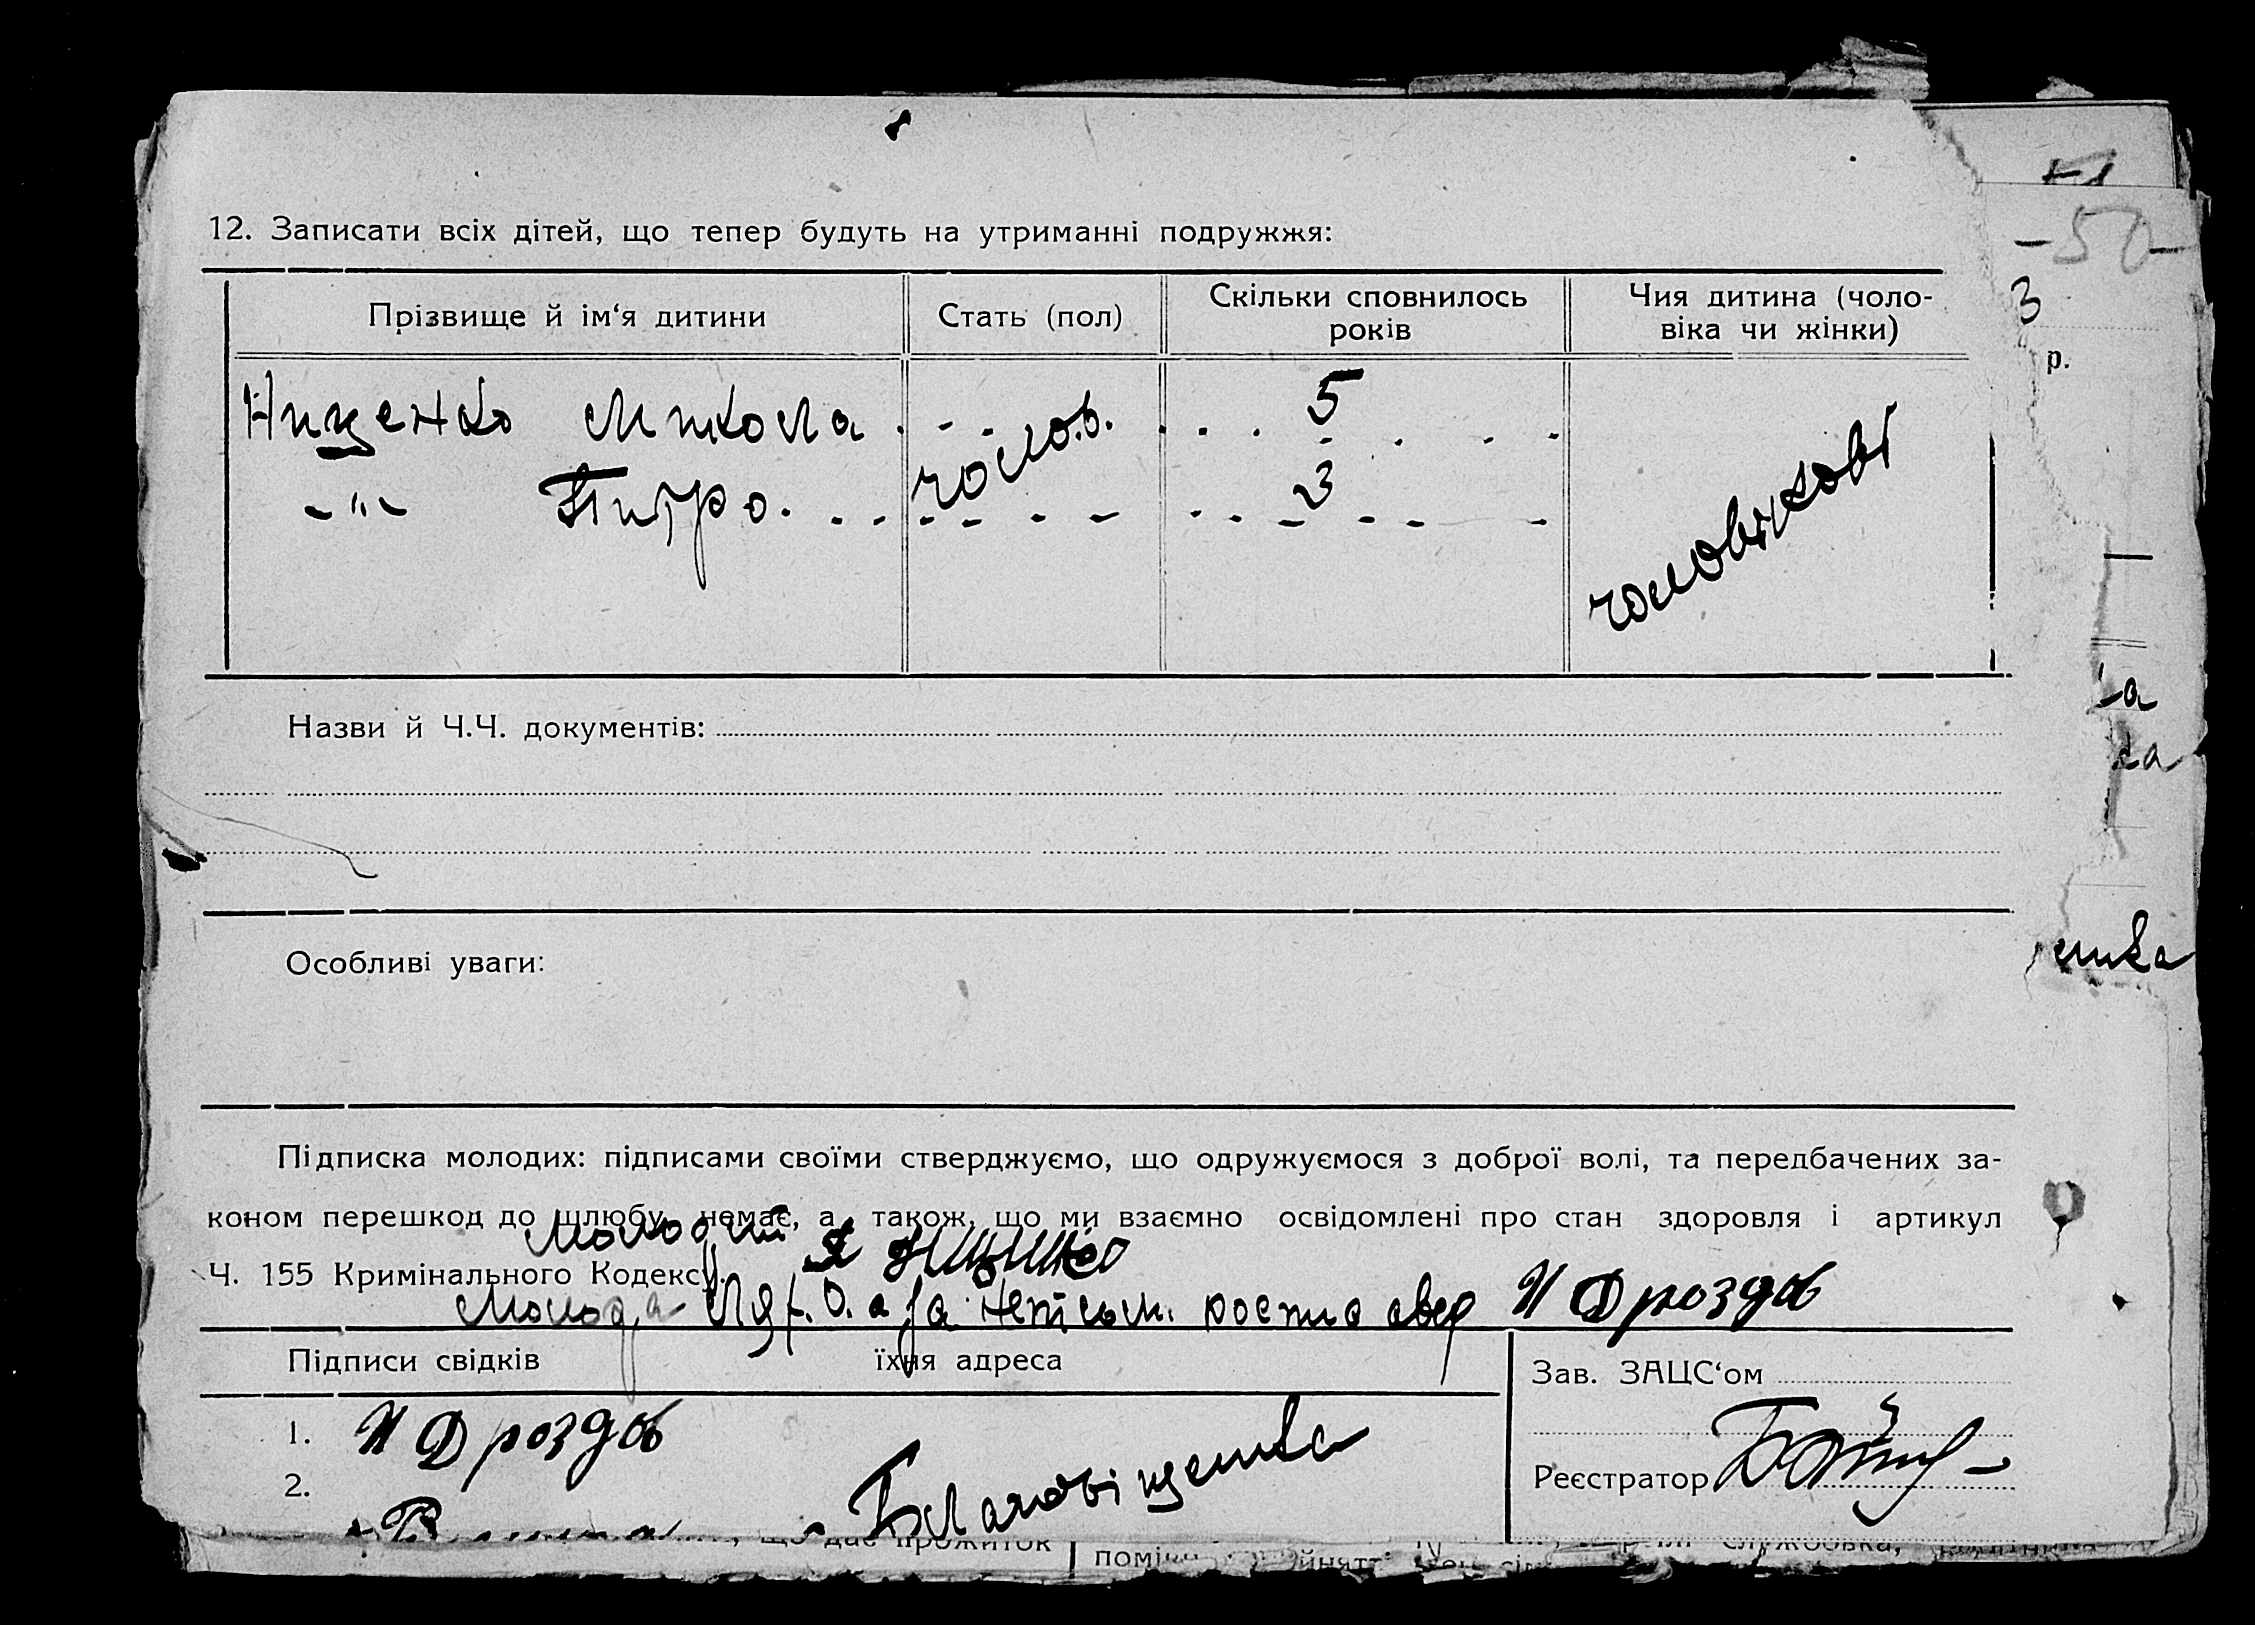 51
-50-
12. Записати всіх дітей, що тепер будуть на утриманні подружжя:
Прізвище й ім‘я дитини
Стать (пол)
Скільки сповнилось років
Чия дитина (чоло-
віка чи жінки)
З
р.
Нищенко Микола
чолов.
5
чоловікові
-"- Питро
3
Назви й Ч.Ч. документів:
Особливі уваги:
Підписка молодих: підписами своїми стверджуємо, що одружуємося з доброї волі, та передбачених за-
коном перешкод до шлюбу немає, а також, що ми взаємно освідомлені про стан здоровля і артикул
Ч. 155 Кримінального Кодексу.
Молодий
Молода за неписьм. И Дрозда
Підписи свідків
їхня адреса
Зав. ЗАЦС‘ом
1. И Дрозда
2.
Благовіщенка
Реєстратор
що дає прожиток
службовка,